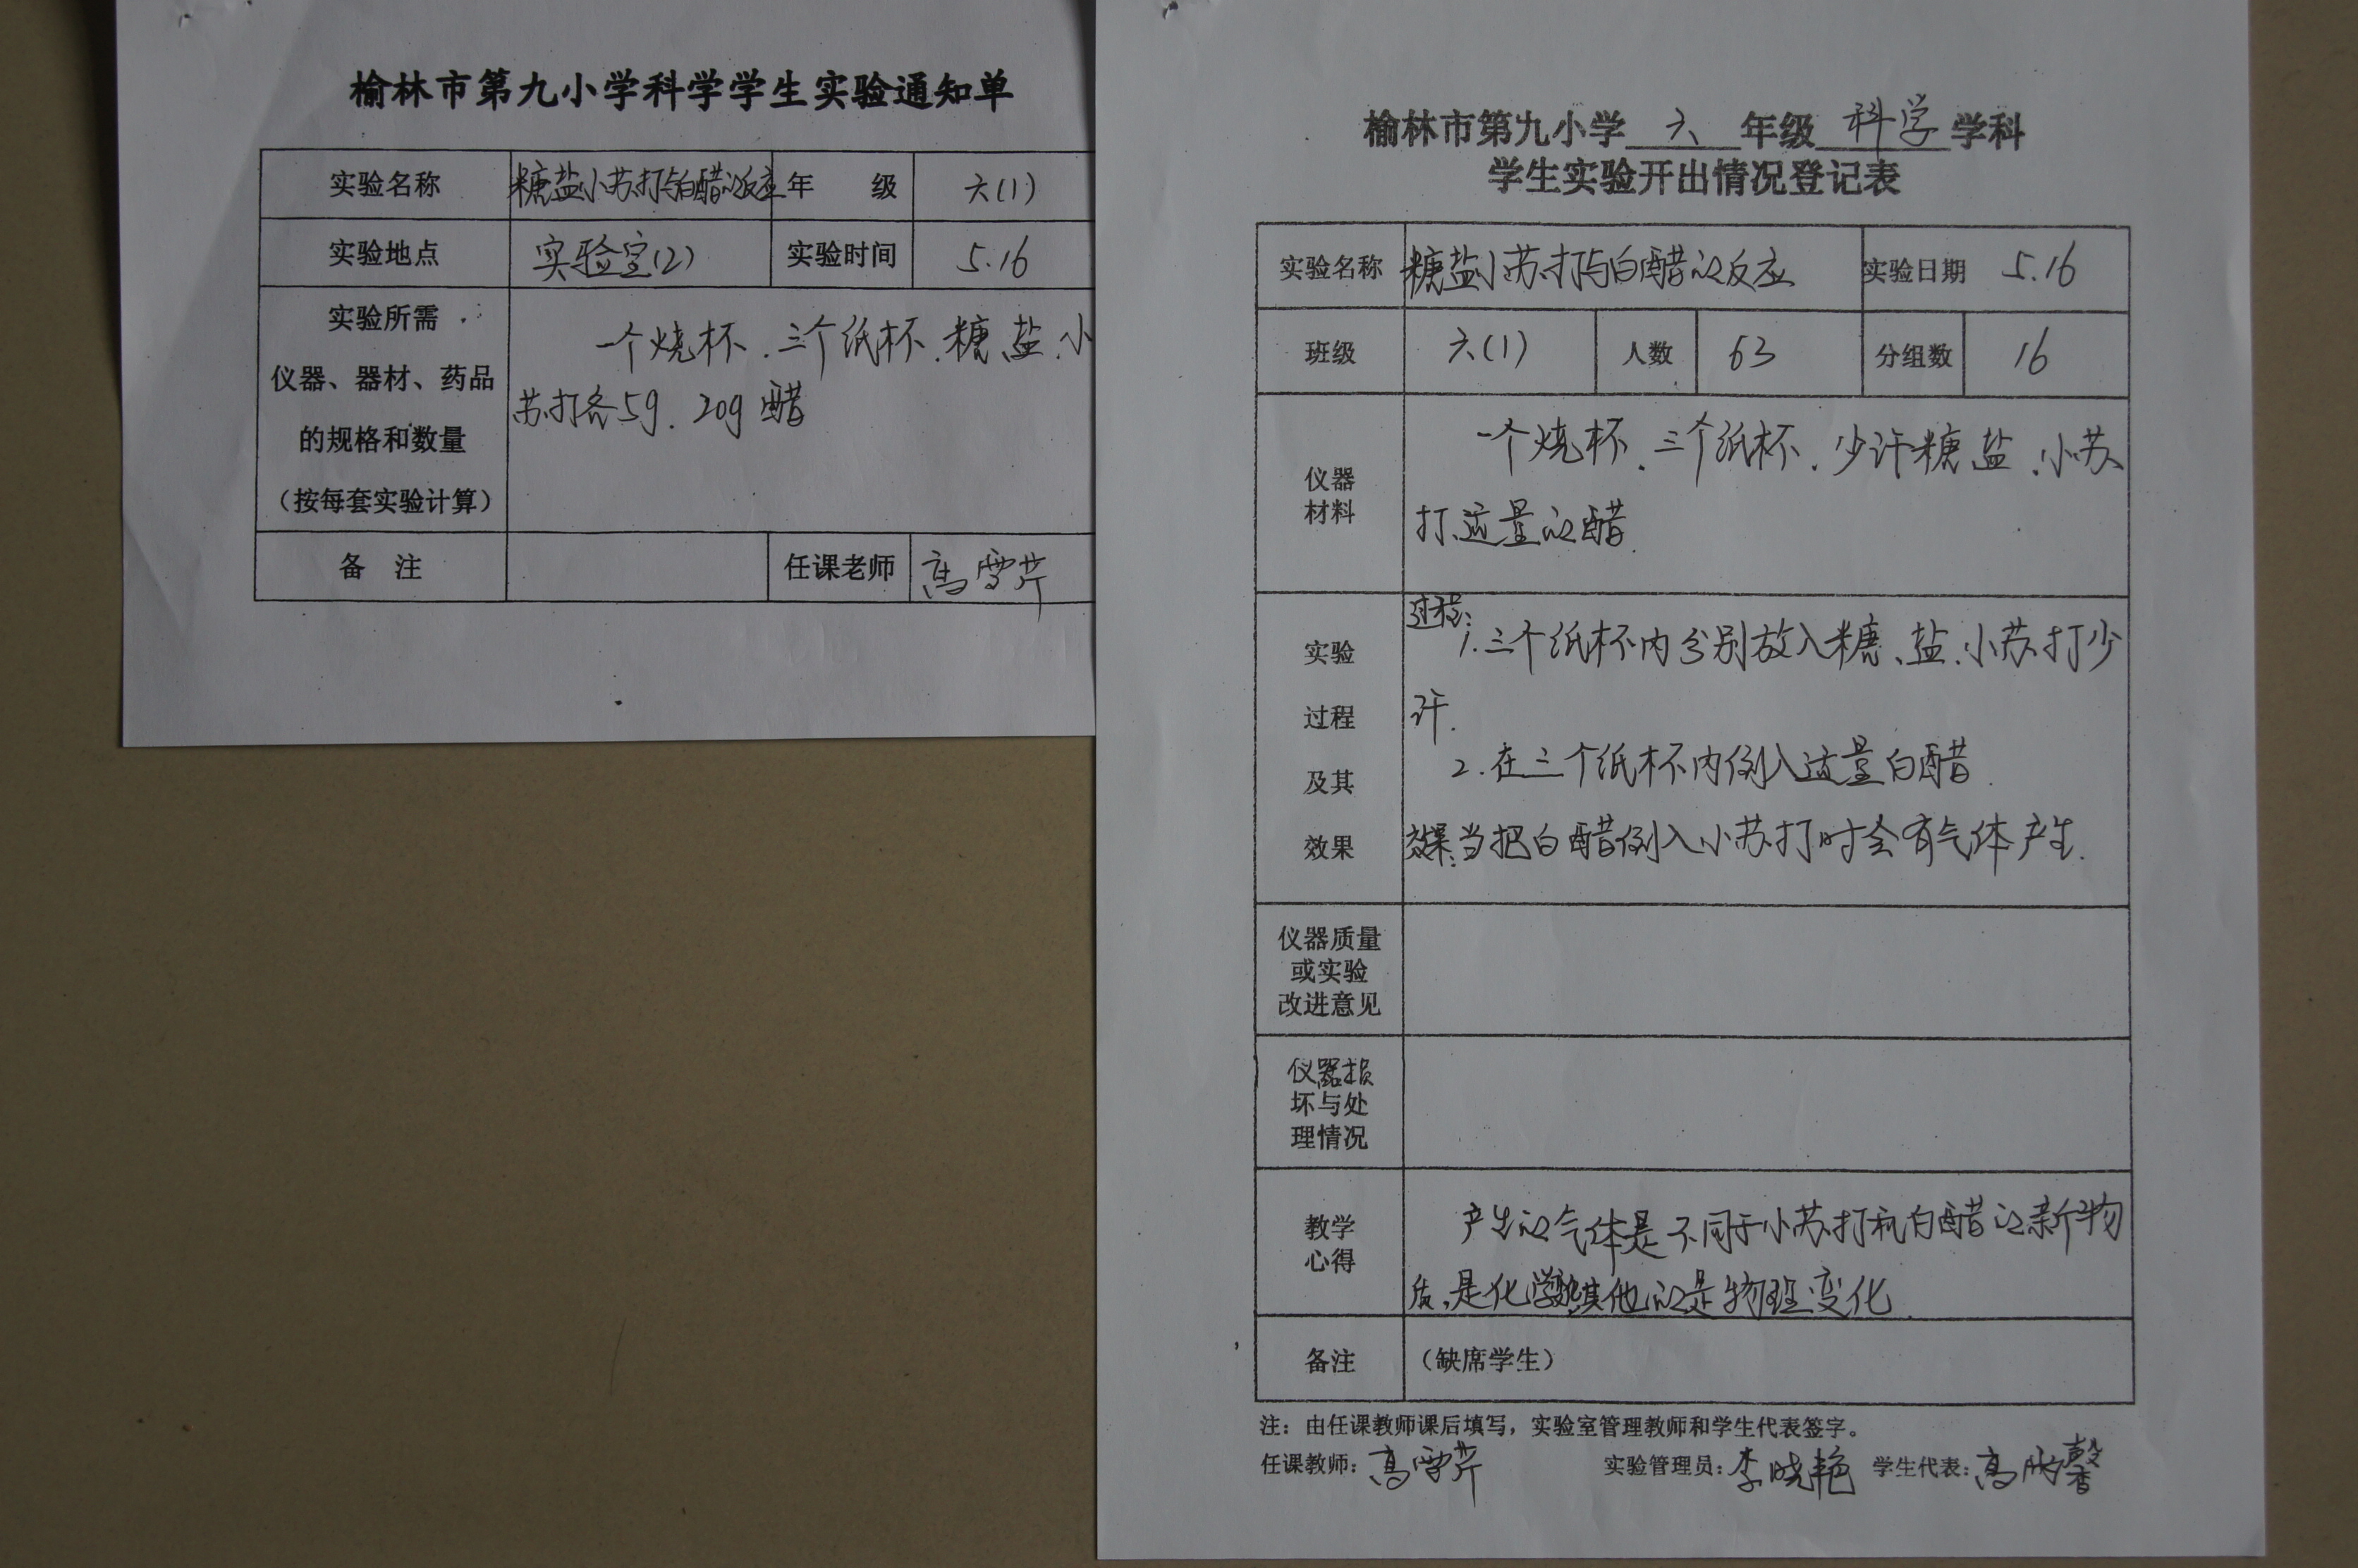 榆林市第九小学科学学生实验通知单
实验名称 糖盐小苏打与白醋的反应 年 级 六(1)
实验地点 实验室(2) 实验时间 5.16
实验所需
仪器、器材、药品
的规格和数量
(按每套实验计算)
一个烧杯.三个纸杯.糖、盐、小
苏打各5g.20g醋
备 注 任课老师 高雪芹
榆林市第九小学 六 年级 科学 学科
学生实验开出情况登记表
实验名称 糖盐小苏打与白醋的反应 实验日期 5.16
班级 六(1) 人数 63 分组数 16
仪器
材料
一个烧杯.三个纸杯.少许糖盐.小苏
打、适量的醋.
实验
过程
及其
效果
过程:
1.三个纸杯内分别放入糖、盐、小苏打少
许.
2.在三个纸杯内倒入适量白醋.
效果:当把白醋倒入小苏打时会有气体产生.
仪器质量
或实验
改进意见
仪器损
坏与处
理情况
教学
心得
产生的气体是不同于小苏打和白醋的新物
质,是化学变化,其他的是物理变化.
备注 (缺席学生)
注:由任课教师课后填写,实验室管理教师和学生代表签字。
任课教师:高雪芹 实验管理员:李晓艳 学生代表:高